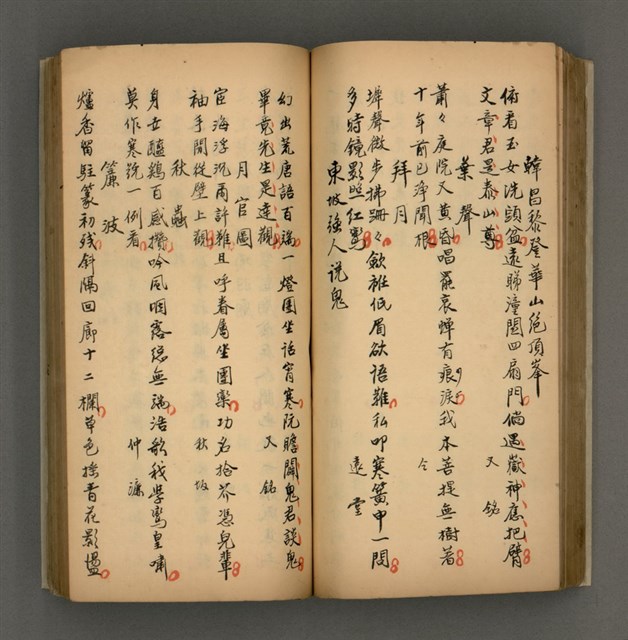 韓昌黎登華山絕頂峯
俯看玉女洗頭盆遠睇潼關四扇門倘遇嶽神應把臂
文章君是泰山尊　又銘
葉聲
蕭々庭院又黃昏唱罷哀蟬有痕淚我本菩提無樹著
十年前已淨聞根　今
拜月
墀聲微步拂珊々斂袵低眉欲語難私叩寒簧申一問
多時鏡影照紅鸞　遠堂
東坡強人說鬼
幻出荒唐語百端一燈團坐話宵寒阮瞻闢鬼君談鬼
畢竟先生是達觀　又銘
月宦圖
宦海浮沉兩許難且呼眷屬坐團欒功名拾芥憑兒輩
袖手閒從壁上觀　秋坂
秋蟲
身世醯鷄百感攢吟風咽露總無端浩歌我學鸞皇嘯
莫作寒號一例看　仲濂
簾波
爐香留駐篆初殘斜隔回廊十二欄草色接青花影搵